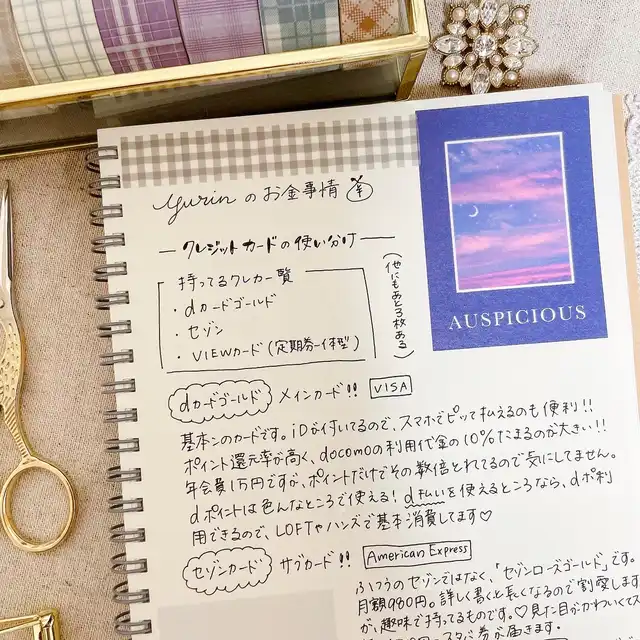 yurinのお金事情 ¥
クレジットカードの使い分け
持ってるクレカ一覧
・dカードゴールド
・セゾン
・VIEWカード(定期券一体型)
(他にもあと3枚ある)
AUSPICIOUS
dカードゴールド メインカード!! VISA
基本このカードです。iDが付いてるので、スマホでピッて払えるのも便利!!
ポイント還元率が高く、docomoの利用代金の10%たまるのが大きい!!
年会費1万円ですが、ポイントだけでその数倍とれてるので気にしてません。
dポイントは色んなところで使える! d払いを使えるところなら、dポ利
用できるので、LOFTやハンズで基本消費してます♡
セゾンカード サブカード!! American Express
ふつうのセゾンではなく、「セゾンローズゴールド」です。
月額980円。詳しく書くと長くなるので割愛します
が、趣味で持ってるものです。♡見た目がかわいくてス
券が届きます。